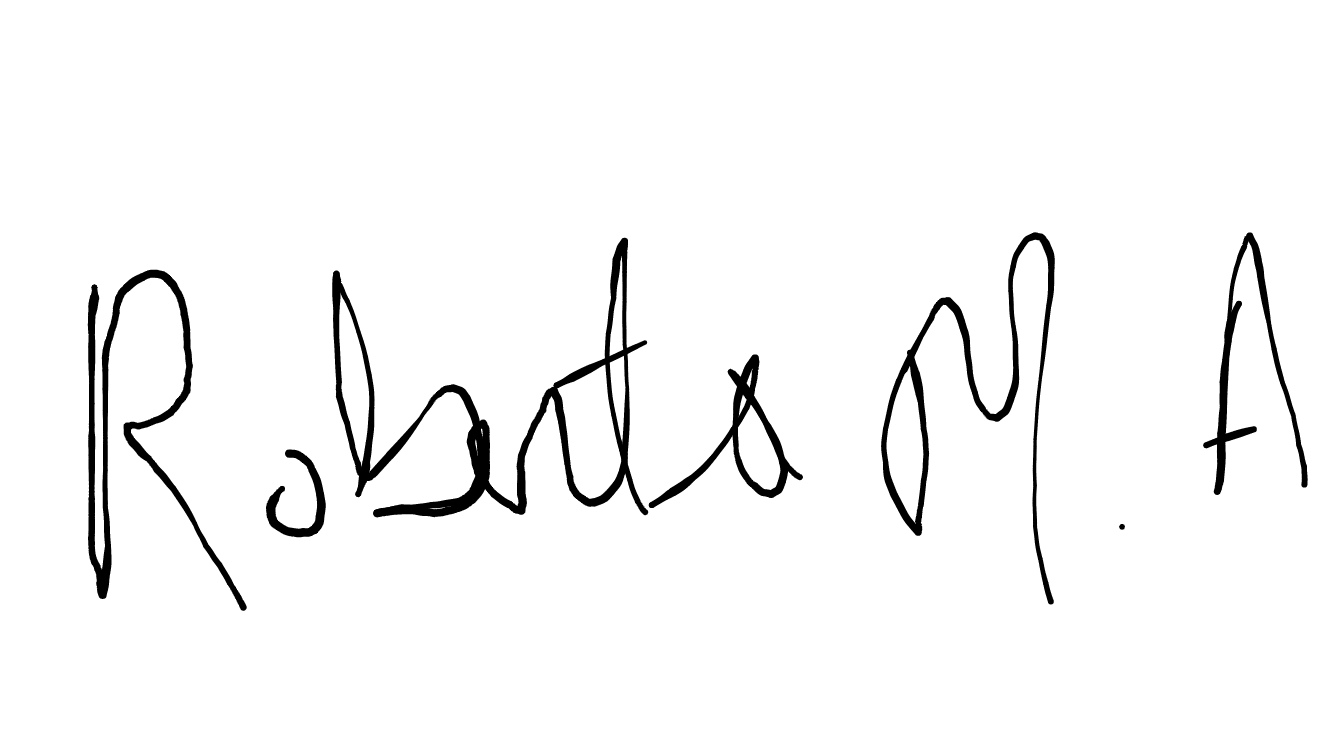 Roberto M. A